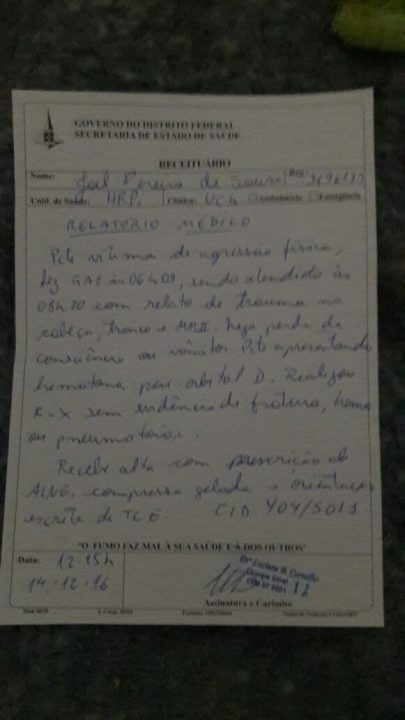 GOVERNO DO DISTRITO FEDERAL
SECRETARIA DE ESTADO DE SAÚDE
RECEITUÁRIO
Nome: de Souza Reg.
Unid. de Saúde: HRP. Clínica: UCG Ambulatório Emergência
RELATÓRIO MÉDICO
Pcte vítima de agressão física,
fez GAE às 06h09, sendo atendido às
08h20 com relato de trauma na
cabeça, tronco e Nega perda da
consciência ou vômitos. Pcte apresentando
hematoma peri-orbital D. Realizou
R-X sem evidência de fratura, hemo
ou pneumotórax.
Recebe alta com prescrição de
compressa gelada e orientação
escrita de TCE. CID Y04/S01
"O FUMO FAZ MAL À SUA SAÚDE E À DOS OUTROS"
Data: 12:15h
14.12.16
Cirurgia Geral
Assinatura e Carimbo